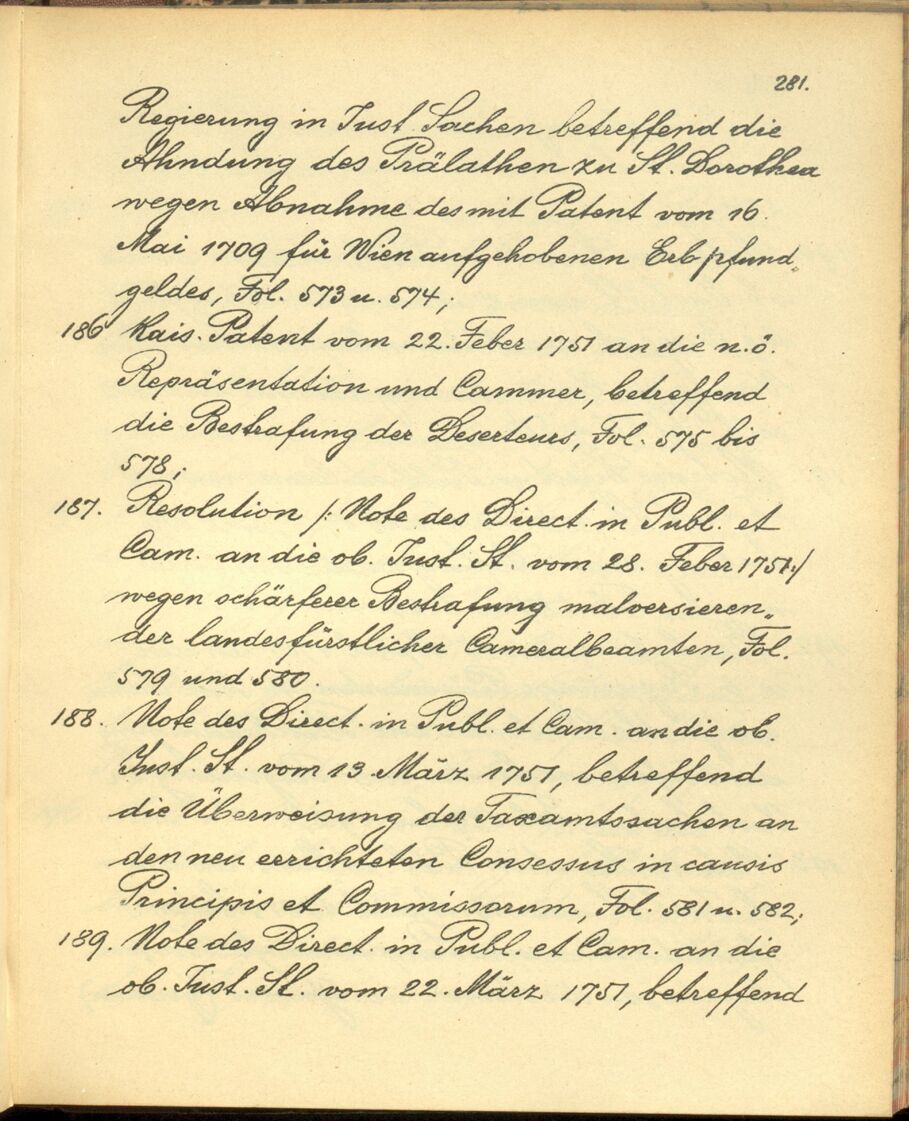 281.
Regierung in Just. Sachen betreffend die
Ahndung des Prälathen zu St. Dorothea
wegen Abnahme des mit Patent vom 16.
Mai 1709 für Wien aufgehobenen Erbpfund„
geldes, Fol. 573 u. 574;
186 Kais. Patent vom 22. Feber 1751 an die n.ö.
Repräsentation und Cammer, betreffend
die Bestrafung der Deserteurs, Fol. 575 bis
578;
187. Resolution /: Note des Direct. in Publ. et
Cam. an die ob. Just. St. vom 28. Feber 1751:/
wegen schärferer Bestrafung malversieren„
der landesfürstlicher Cameralbeamten, Fol.
579 und 580.
188. Note des Direct. in Publ. et Cam. an die ob.
Just. St. vom 13. März 1751, betreffend
die Überweisung der Taxamtssachen an
den neu errichteten Consessus in causis
Principis et Commissorum, Fol. 581 u. 582;
189. Note des Direct. in Publ. et Cam. an die
ob. Just. St. vom 22. März 1751, betreffend